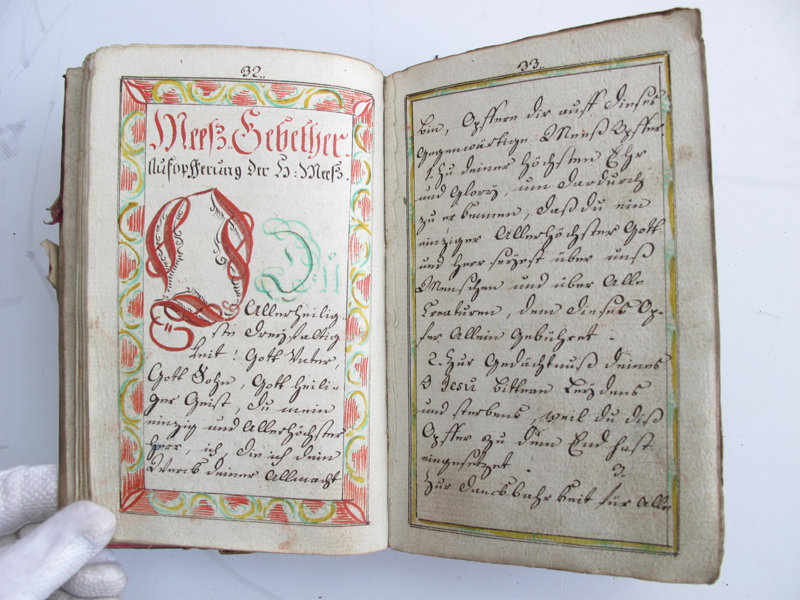 32..
Meeß. Gebether.
Aufopfferung der H: Meeß.
O Du
Allerheilig-
ste dreyfaltig
keit! Gott Vater,
Gott Sohn, Gott Heili-
ger Geist, du mein
einzig und Allerhöchster
Herr, ich, die ich dein
Werck deiner Allmacht
33..
bin, Opffere dir auff dieses
gegenwärtige Meeß Opffer
1. Zu deiner Höchsten Ehr
und Glory, um dardurch
zu erkennen, daß du ein
einziger Allerhöchster Gott
und Herr seyest über uns
Menschen und über Alle
Creaturen, dem dieses Op-
fer Allein Gebühret.
2. Zur Gedächtnuß deines
Jesu bittern Leydens
und sterbens, weil du diß
Opffer zu dem End hast
eingesetzet. 3.
Zur Danckbahrkeit für Alle